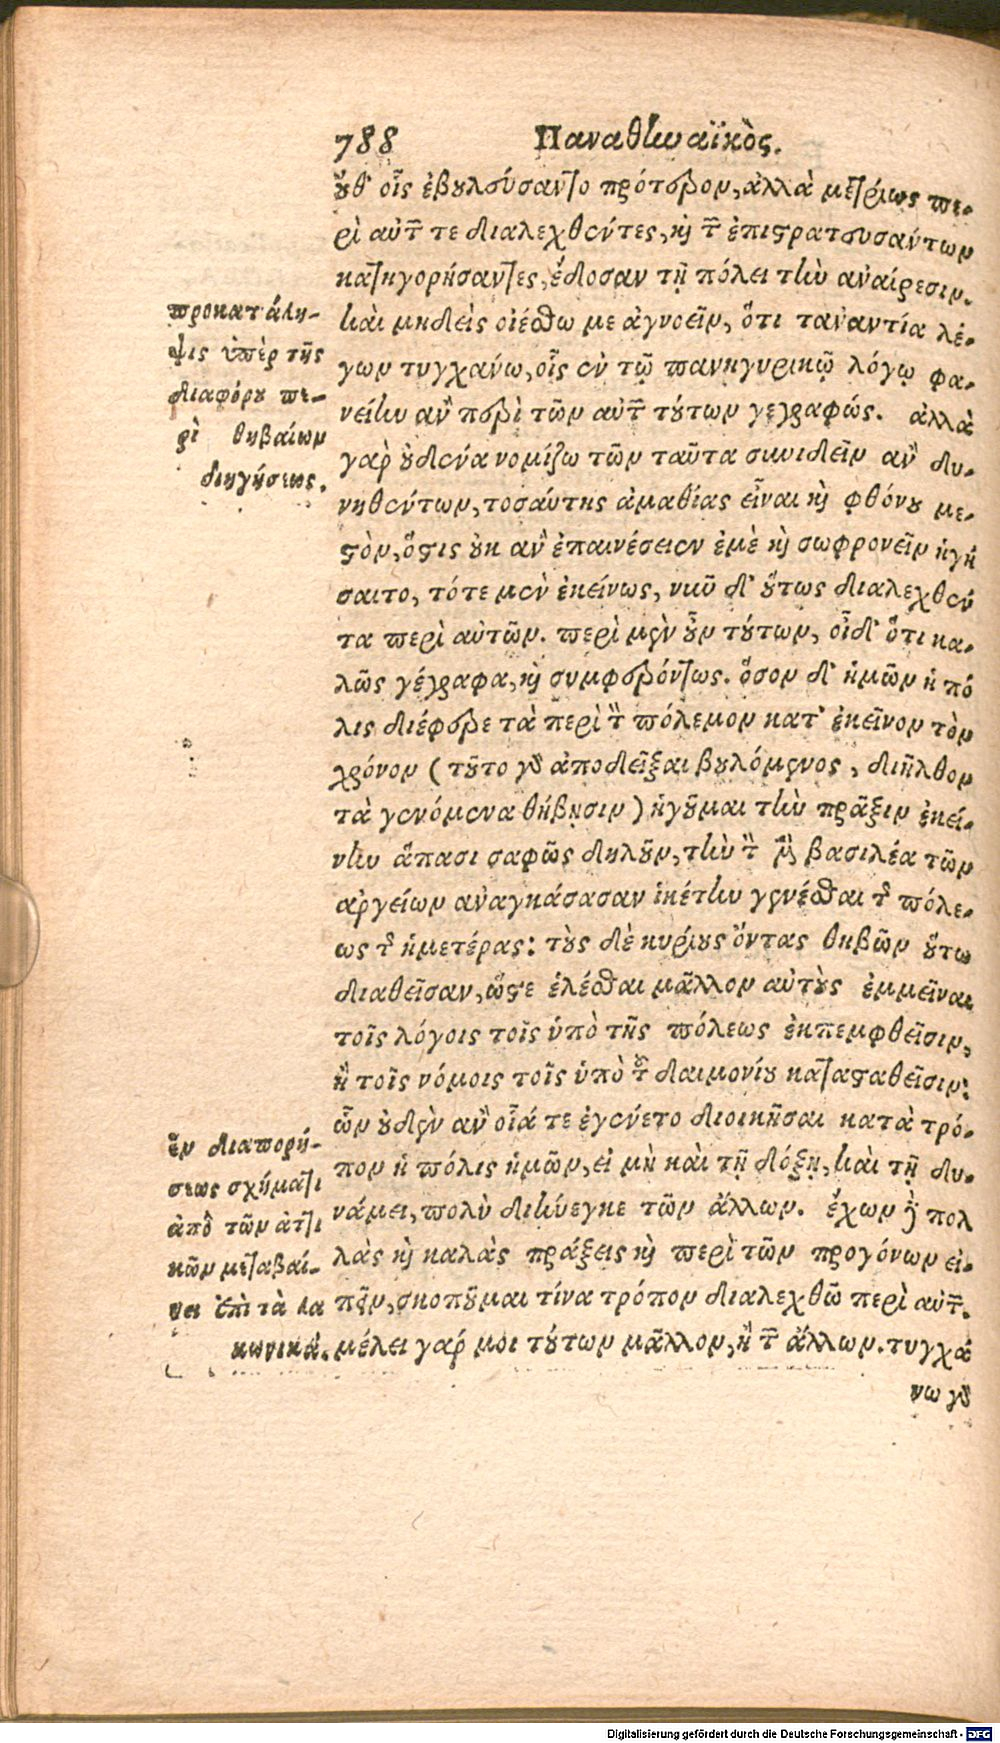 788 Παναθηναϊκὸς.
οὔθ' οἷς ἐβουλεύσαντο πρότερον, ἀλλὰ μετρίως πε-
ρὶ αὑτῶν τε διαλεχθέντες, καὶ τῶν ἐπιστρατευσάντων
κατηγορήσαντες, ἔδοσαν τῇ πόλει τὴν ἀναίρεσιν.
καὶ μηδεὶς οἰέσθω με ἀγνοεῖν, ὅτι τἀναντία λέ-
γων τυγχάνω, οἷς ἐν τῷ πανηγυρικῷ λόγῳ φα-
νείην ἂν περὶ τῶν αὐτῶν τούτων γεγραφώς. ἀλλὰ
γὰρ οὐδένα νομίζω τῶν ταῦτα συνιδεῖν ἂν δυ-
νηθέντων, τοσαύτης ἀμαθίας εἶναι καὶ φθόνου με-
στὸν, ὅστις οὐκ ἂν ἐπαινέσειεν ἐμὲ καὶ σωφρονεῖν ἡγή
σαιτο, τότε μὲν ἐκείνως, νῦν δ' οὕτως διαλεχθέν
τα περὶ αὐτῶν. περὶ μὲν οὖν τούτων, οἶδ' ὅτι κα-
λῶς γέγραφα, καὶ συμφερόντως. ὅσον δ' ἡμῶν ἡ πό
λις διέφερε τὰ περὶ τὸν πόλεμον κατ' ἐκεῖνον τὸν
χρόνον (τοῦτο γὰρ ἀποδεῖξαι βουλόμενος, διῆλθον
τὰ γενόμενα θήβησιν) ἡγοῦμαι τὴν πρᾶξιν ἐκεί-
νην ἅπασι σαφῶς δηλοῦν, τὴν τὸν μὲν βασιλέα τῶν
ἀργείων ἀναγκάσασαν ἱκέτην γενέσθαι τῆς πόλε-
ως τῆς ἡμετέρας: τοὺς δὲ κυρίους ὄντας θηβῶν οὕτω
διαθεῖσαν, ὥστε ἑλέσθαι μᾶλλον αὐτοὺς ἐμμεῖναι
τοῖς λόγοις τοῖς ὑπὸ τῆς πόλεως ἐκπεμφθεῖσιν,
ἢ τοῖς νόμοις τοῖς ὑπὸ τοῦ δαιμονίου κατασταθεῖσιν:
ὧν οὐδὲν ἂν οἵά τε ἐγένετο διοικῆσαι κατὰ τρό-
πον ἡ πόλις ἡμῶν, εἰ μὴ καὶ τῇ δόξῃ, καὶ τῇ δυ-
νάμει, πολὺ διήνεγκε τῶν ἄλλων. ἔχων δὲ πολ
λὰς καὶ καλὰς πράξεις καὶ περὶ τῶν προγόνων εἰ-
πεῖν, σκοποῦμαι τίνα τρόπον διαλεχθῶ περὶ αὐτῶν.
μέλει γάρ μοι τούτων μᾶλλον, ἢ τῶν ἄλλων. τυγχά
νω γὰρ
προκατάλη-
ψις ὑπὲρ τῆς
διαφόρου πε-
ρὶ θηβαίων
διηγήσεως.
ἐν διαπορή-
σεως σχήματι
ἀπὸ τῶν ἀττι
κῶν μεταβαί-
νει ἐπὶ τὰ λα
κωνικά.
Digitalisierung gefördert durch die Deutsche Forschungsgemeinschaft - DFG